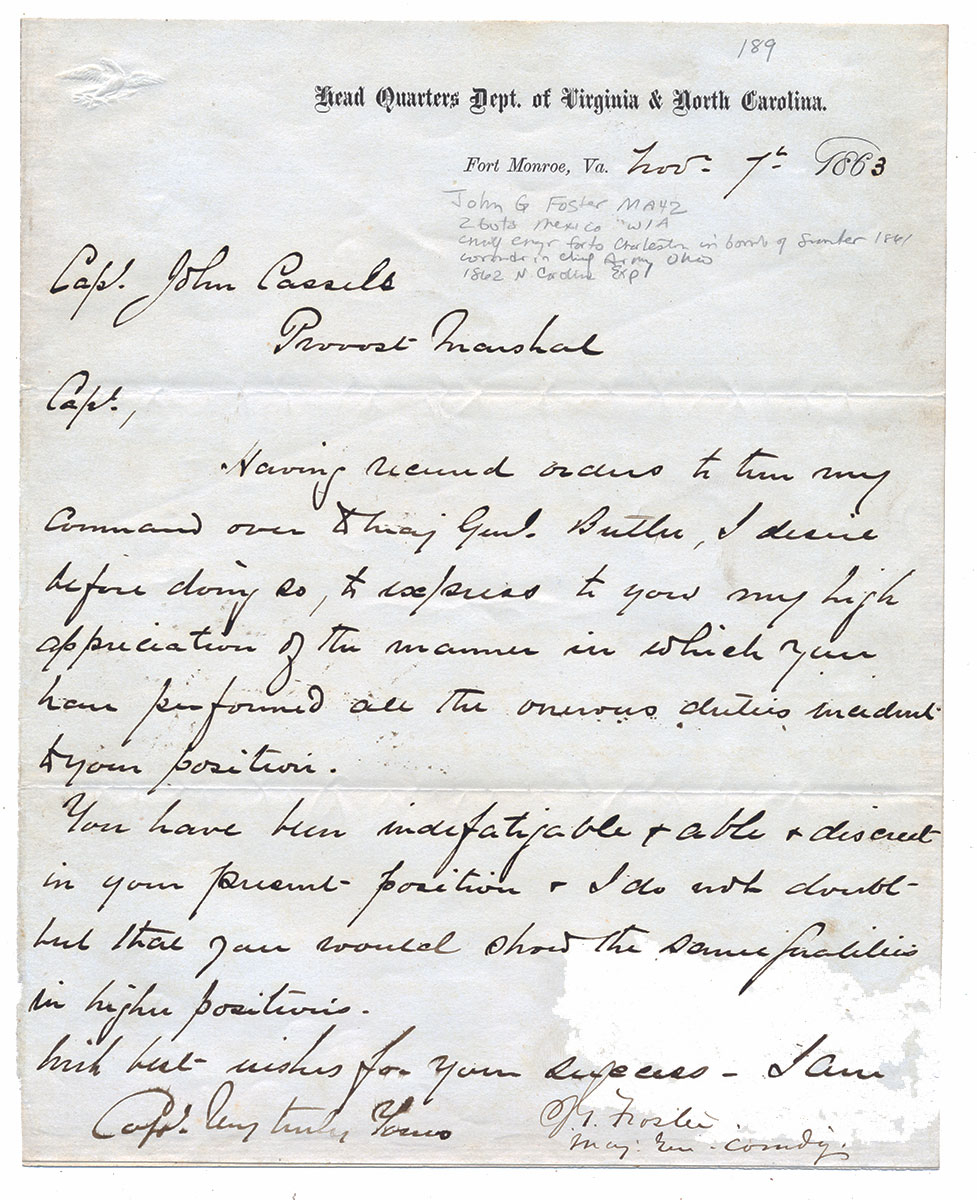 189
Head Quarters Dept. of Virginia & North Carolina.
Fort Monroe, Va. Novr. 7th. 1863
John G Foster MA42
2 bvts Mexico "WIA
engr forts Charleston in bomb of Sumter 1861
in chief Army Ohio
1862 N. Exp
Capt. John Cassels
Provost Marshal
Capt.,
Having received orders to turn my
command over to Maj Genl. Butler, I desire
before doing so, to express to you my high
appreciation of the manner in which you
have performed all the onerous duties incident
to your position.
You have been indefatigable & able & discreet
in your present position & I do not doubt
but that you would show the same
in higher positions.
With best wishes for your success – I am
Capt. Very truly Yours
J. G. Foster
Maj. Gen. Comdg.